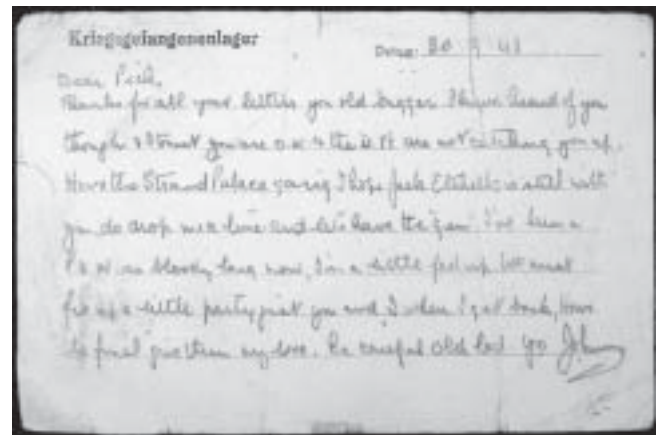 Kriegsgefangenenlager Datum: 20 43
Dear
Thanks for all your letters you old bugger. I have heard of you
though & trust you are O.K. & the are not catching you up.
Hows the Strand Palace going I hope Jack is still with
you do drop me a line and let's have the 'gen'. I've been a
P.O.W. so bloody long now, I'm a little fed up. We must
fix up a little party just you and I when I get back, Hows
give them my love. Be careful old lad yo Johnny